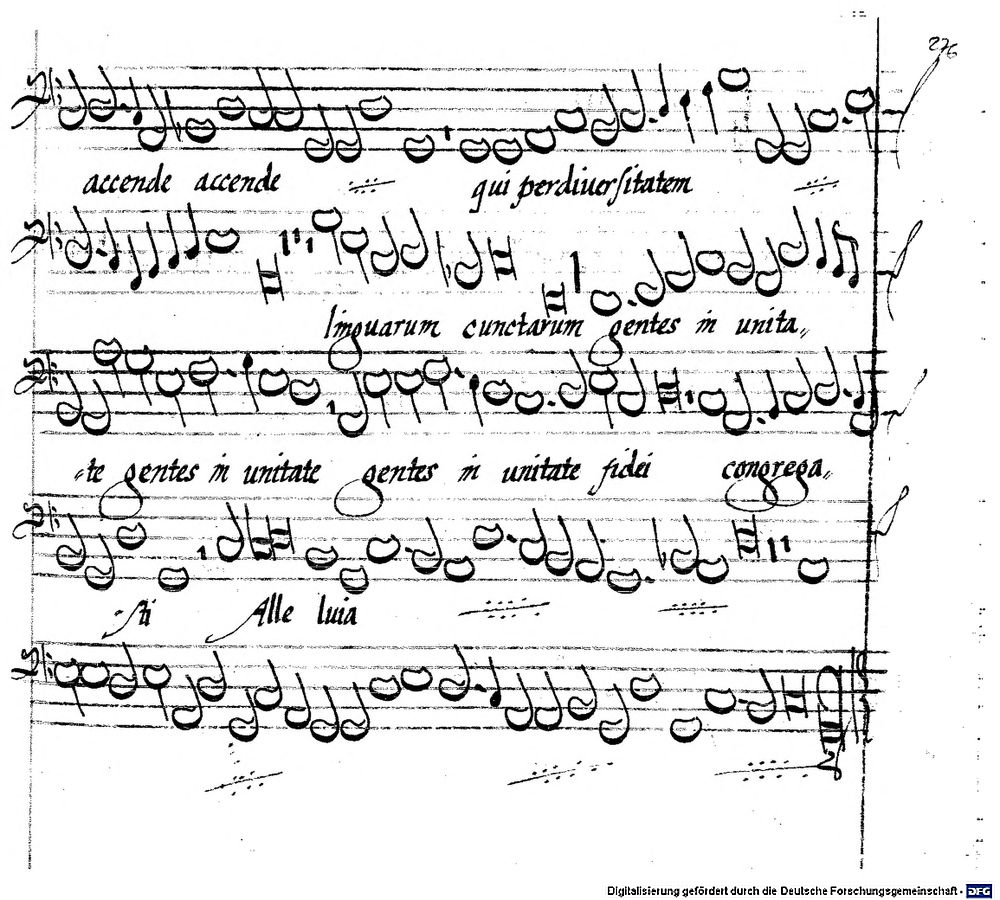 276
accende accende
qui perdiuersitatem
linguarum cunctarum gentes in unita„
„te gentes in unitate gentes in unitate fidei congrega„
-sti Alle luia
Digitalisierung gefördert durch die Deutsche Forschungsgemeinschaft - DFG